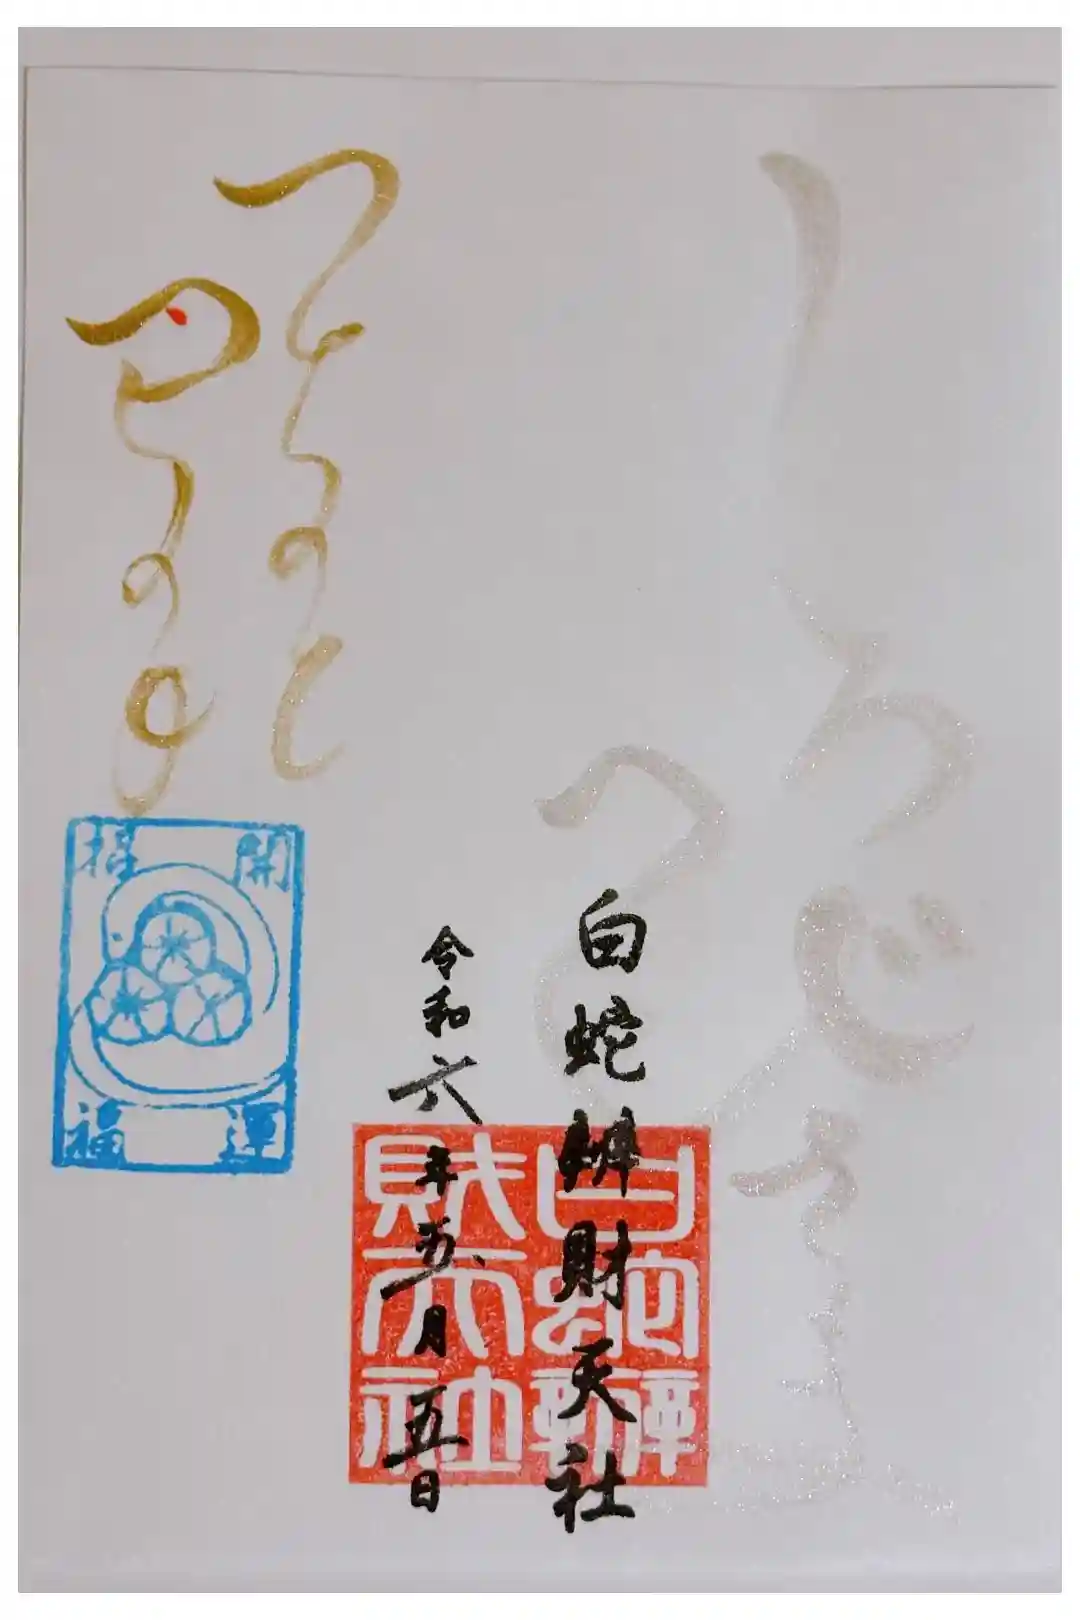 白蛇辨財天社
令和六年五月五日
白蛇辨
財天社
つちのと
開運
招福